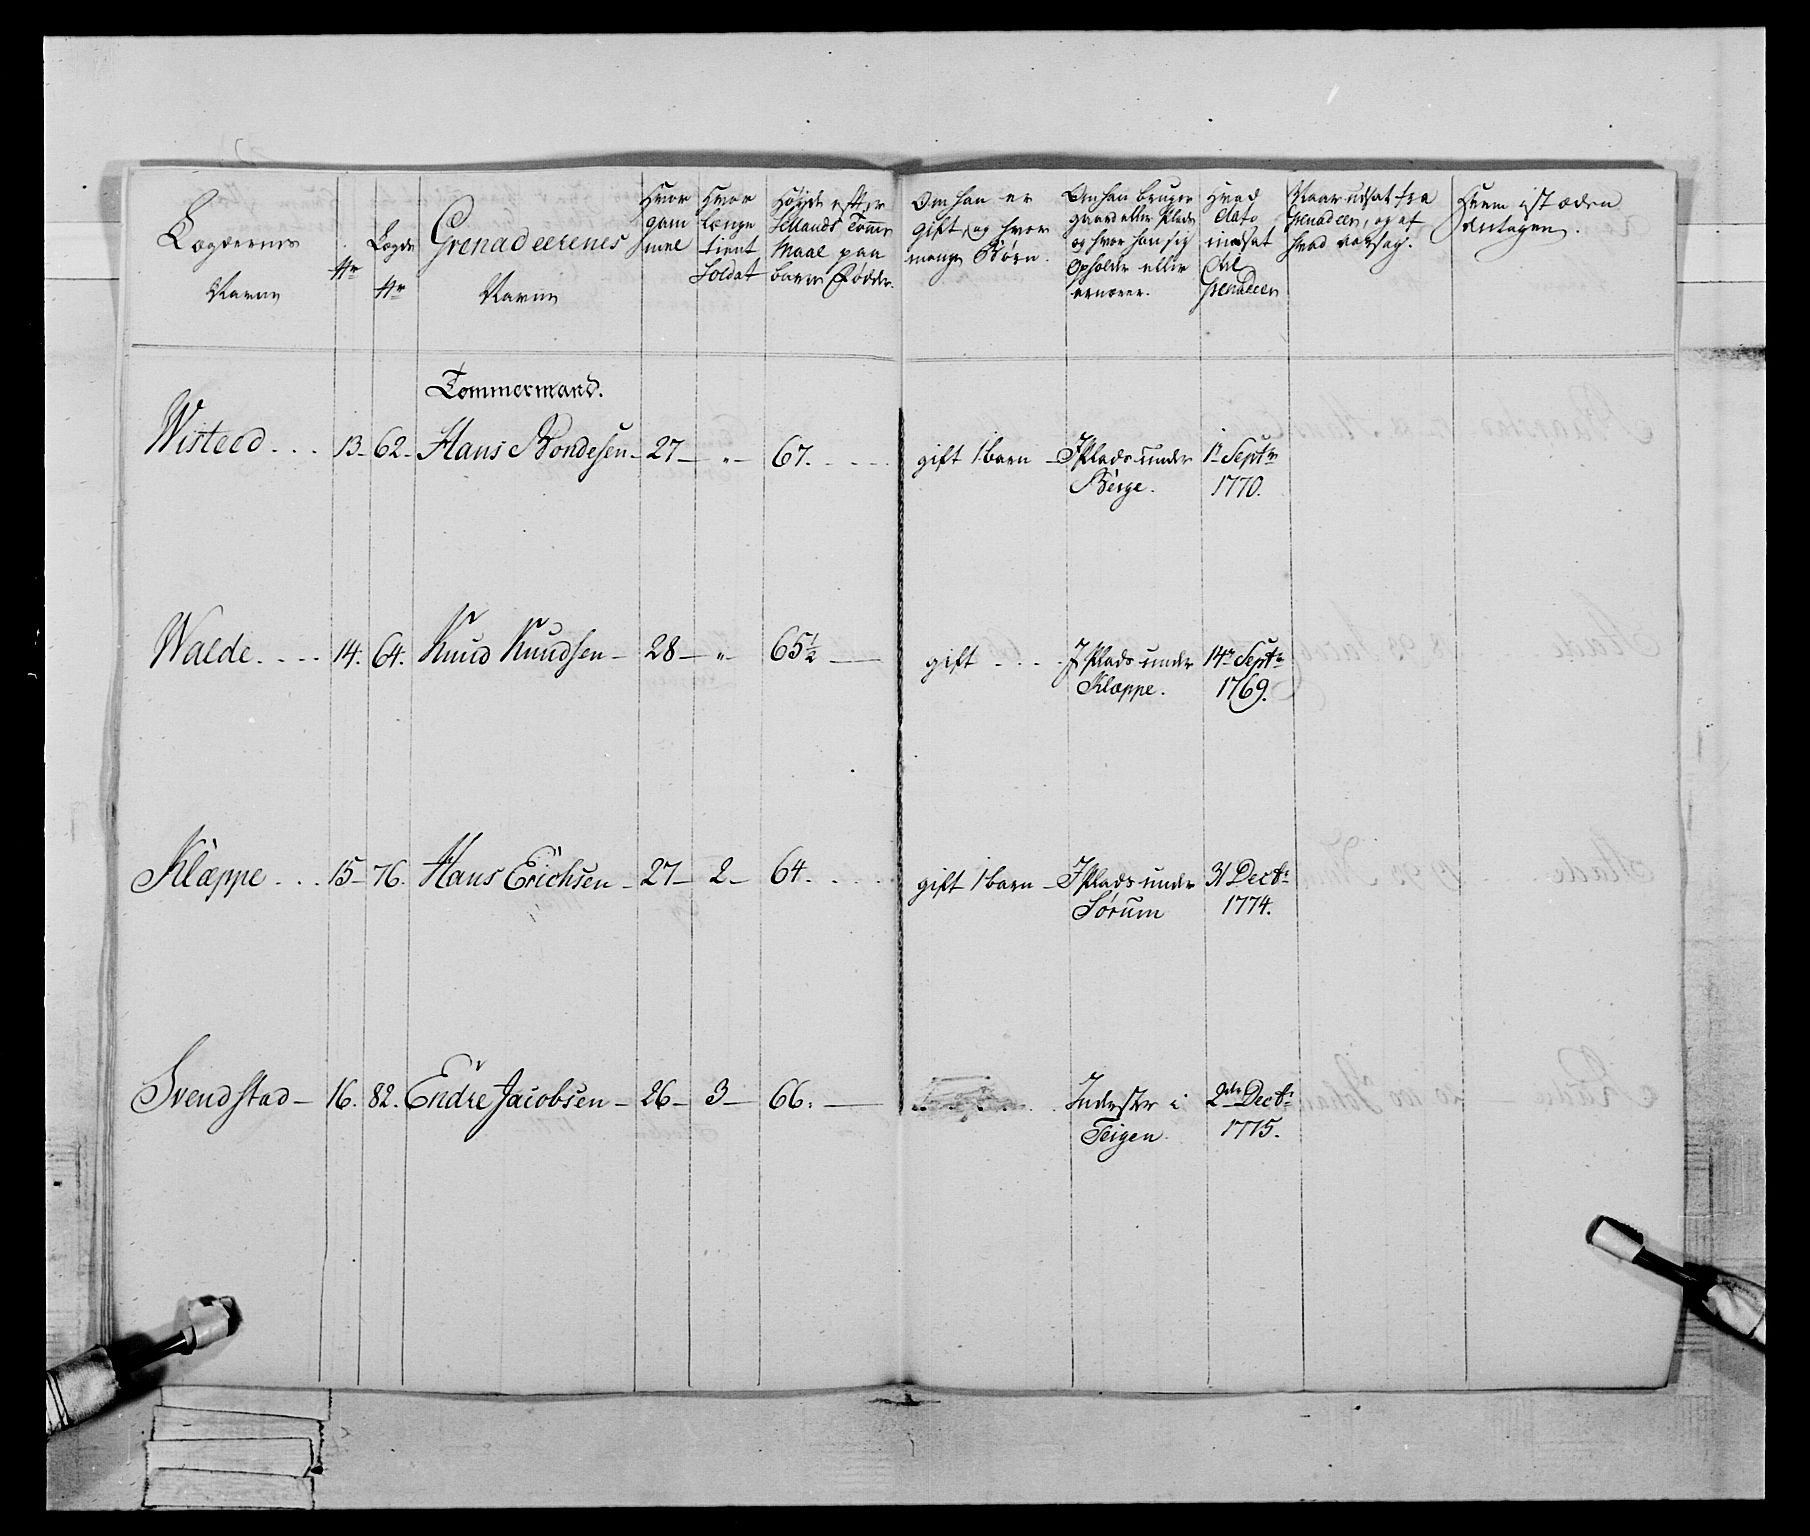 Lægdernes Navne
Nr
Lægds Nr
Grenadeerenes Navne
Hvor gammel
Hvor længe tient Soldat
Høyde efter Sellands Tomme Maal paa bare Fødder.
Om han er gift, og hvor mange Børn.
Om han bruger gaard eller Plads og hvor han sig opholder eller ernærer.
Hvad dato indsat til Grenadeer
Naar udsat fra Grenadeer, og af hvad aarsag.
Hvem i stæden antagen.
Tømmermand.
Wisteed . . . 13. 62. Hans Bondesen 27 „ 67. gift 1 barn J Plads under Berge. 1te Septr 1770.
Walde. . . . 14. 64. Knud Knudsen 28 „ 65½ gift . . . J Plads under Klæppe. 14de Septr 1769.
Klæppe . . . 15 76. Hans Erichsen 27 2 64. gift 1 barn J Plads under Sørum 31 Decbr 1774.
Svendstad 16. 82. Endre Jacobsen 26 3 66. Inderster i Teigen. 2den Decbr 1775.